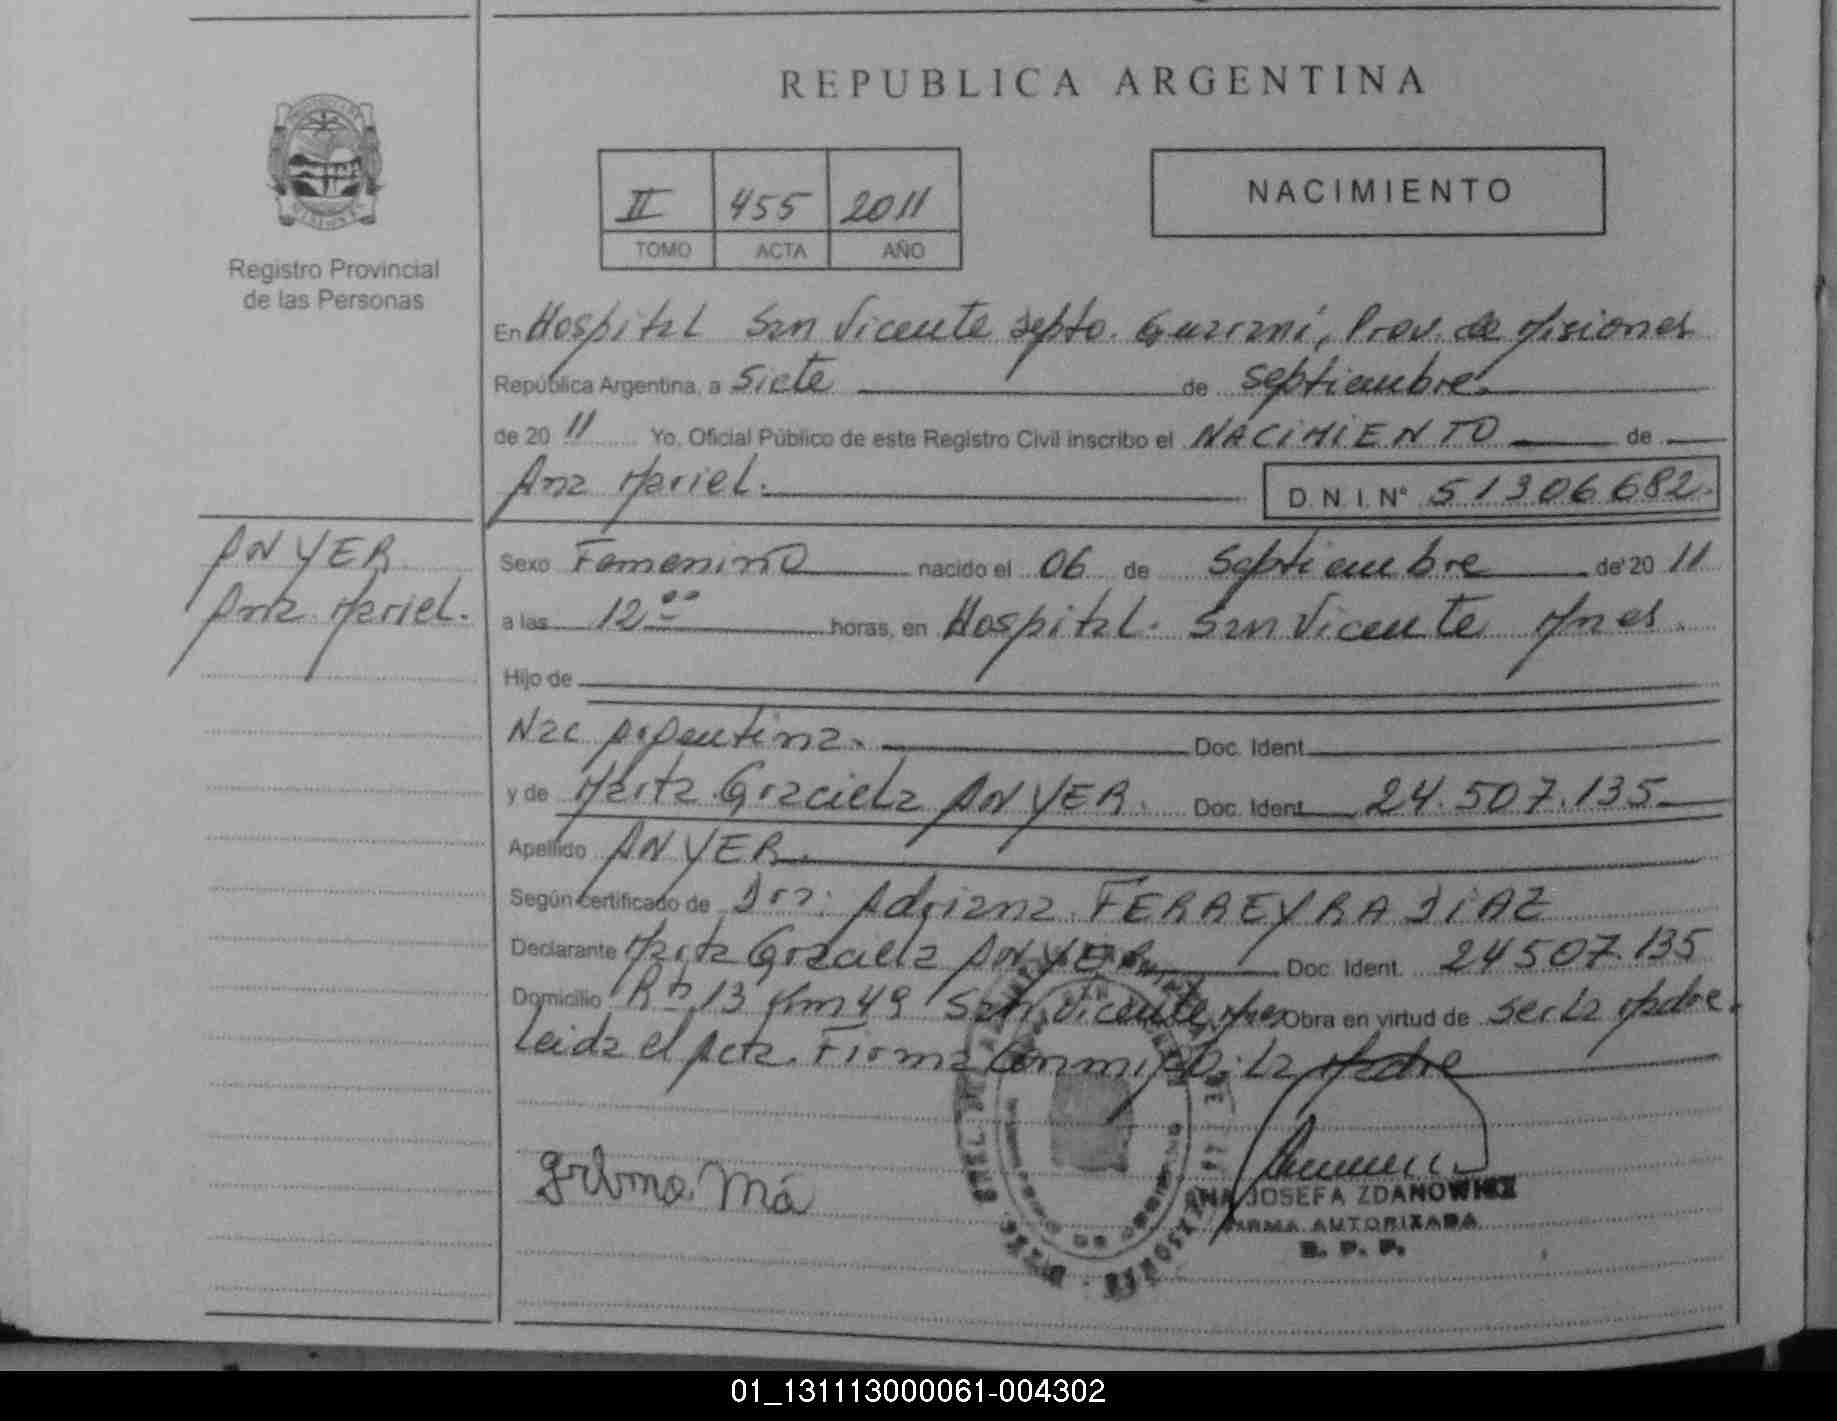 REPUBLICA ARGENTINA
II 455 2011
TOMO ACTA AÑO
NACIMIENTO
Registro Provincial
de las Personas
En Hospital San Vicente Depto. Guaraní, Prov. de Misiones
República Argentina, a Siete de Septiembre.
de 20 11 Yo, Oficial Público de este Registro Civil inscribo el NACIMIENTO de
Ana Mariel. D.N.I. N° 51306682.
ANYER
Ana Mariel.
Sexo Femenino nacido el 06 de Septiembre de 20 11
a las 12 00 horas, en Hospital. San Vicente Mnes.
Hijo de
Nac Argentina. Doc. Ident.
y de Marta Graciela ANYER. Doc. Ident. 24.507.135
Apellido ANYER.
Según certificado de Dra: Adriana FERREYRA DIAZ
Declarante Marta Graciela ANYER Doc. Ident. 24507.135
Domicilio Rta 13 Km 49 San Vicente Mnes Obra en virtud de ser La Madre.
Leida el Acta. Firma Conmigo: La Madre
ANA JOSEFA ZDANOWICZ
FIRMA AUTORIZADA
R. P. P.
01_131113000061-004302